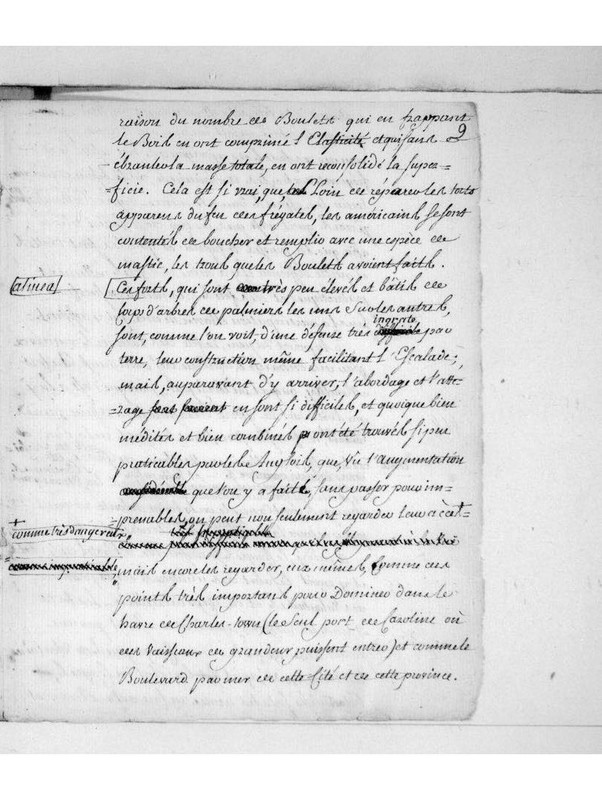 9
raison du nombre de Boulets qui en frappant
le Bois en ont comprimé l'Elasticité et qui sans
ébranler la masse totale, en ont reconsolidé la super=
=ficie. Cela est si vrai, que, loin de réparer les torts
apparens du feu des frégates, les américains se sont
contentés de boucher et remplir avec une espèce de
mastic, les trous que les Boulets avoient faits.
alinea
Ces forts, qui sont très peu élevés et bâtis de
corps d'arbres de palmiers les uns sur les autres,
sont, comme l'on voit, d'une défense très ingrate par
terre, leur construction même facilitant l'Escalade;
mais, auparavant d'y arriver, l'abordage et l'atte=
=rage en sont si difficiles, et quoique bien
medités et bien combinés ont été trouvés si peu
praticables par les Anglois, que vu l'augmentation
que l'on y a faite, sans passer pour im=
prenables, on peut non seulement regarder leur accès +
+ comme très dangereux,
mais encore les regarder, eux mêmes, comme des
points très importans pour Dominer dans le
havre de Charles-town (le Seul port de Caroline où
des Vaisseaux de grandeur puissent entrer) et comme le
Boulevard par mer de cette Cité et de cette province.